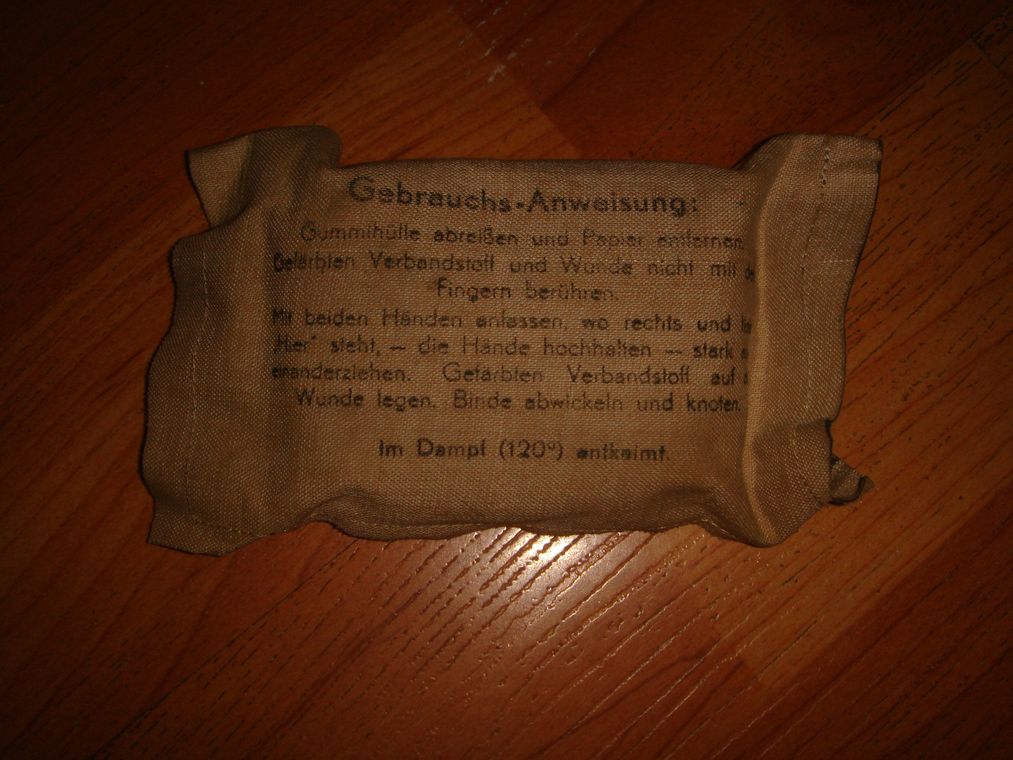 Gebrauchs-Anweisung:
Gummihülle abreißen und Papier entfernen.
Gefärbten Verbandstoff und Wunde nicht mit
Fingern berühren.
Mit beiden Händen anfassen, wo rechts und
„Hier" steht, — die Hände hochhalten — stark
einanderziehen. Gefärbten Verbandstoff auf
Wunde legen. Binde abwickeln und knoten.
Im Dampf (120°) entkeimt.